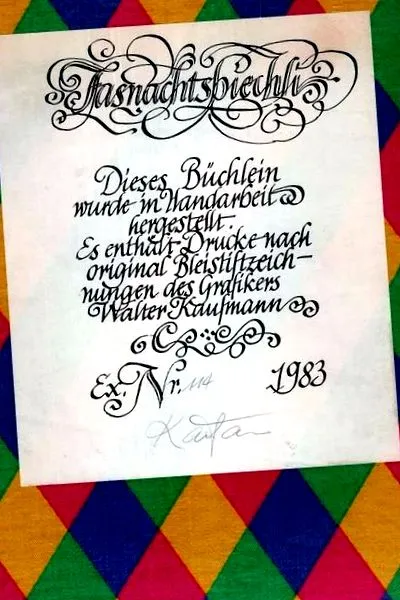 Fasnachtsbiechli
Dieses Büchlein
wurde in Handarbeit
hergestellt.
Es enthält Drucke nach
original Bleistiftzeich-
nungen des Grafikers
Walter Kaufmann
Ex. Nr. 114 1983